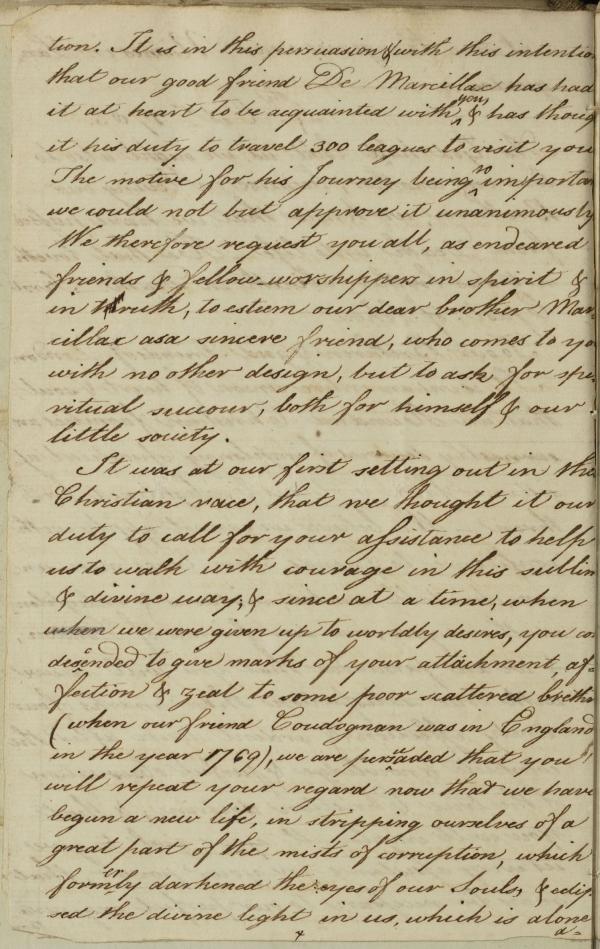 tion. It is in this persuasion & with this intentio
that our good friend De Marcillac has had
it at heart to be acquainted with you, & has thoug
it his duty to travel 300 leagues to visit you
The motive for his Journey being so importan
we could not but approve it unanimously
We therefore request you all, as endeared
friends & fellow-worshippers in spirit &
in truth, to esteem our dear brother Mar-
cillac as a sincere friend, who comes to yo
with no other design, but to ask for spi-
ritual succour, both for himself & our
little society.
It was at our first setting out in the
Christian race, that we thought it our
duty to call for your assistance to help
us to walk with courage in this sublim
& divine way, & since at a time, when
when we were given up to worldly desires, you con
descended to give marks of your attachment, af-
fection & zeal to some poor scattered brethr
(when our friend Coudognan was in England
in the year 1769), we are persuaded that you
will repeat your regard now that we have
begun a new life, in stripping ourselves of a
great part of the mists of corruption, which
formerly darkened the eyes of our Souls, & eclip
sed the divine light in us, which is alone
a-